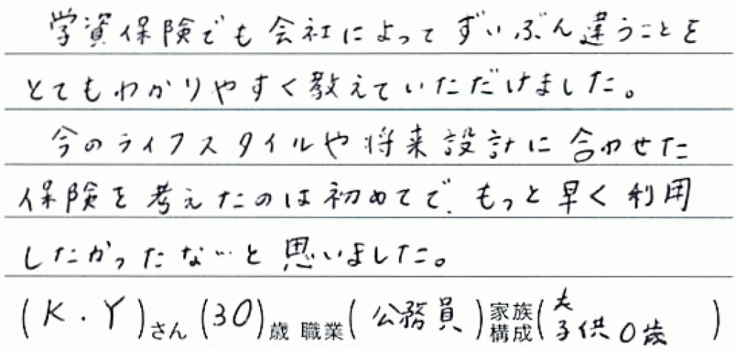 学資保険でも会社によってずいぶん違うことを
とてもわかりやすく教えていただけました。
今のライフスタイルや将来設計に合わせた
保険を考えたのは初めてで、もっと早く利用
したかったな…と思いました。
(K.Y)さん(30)歳 職業(公務員)家族構成(夫 子供0歳)